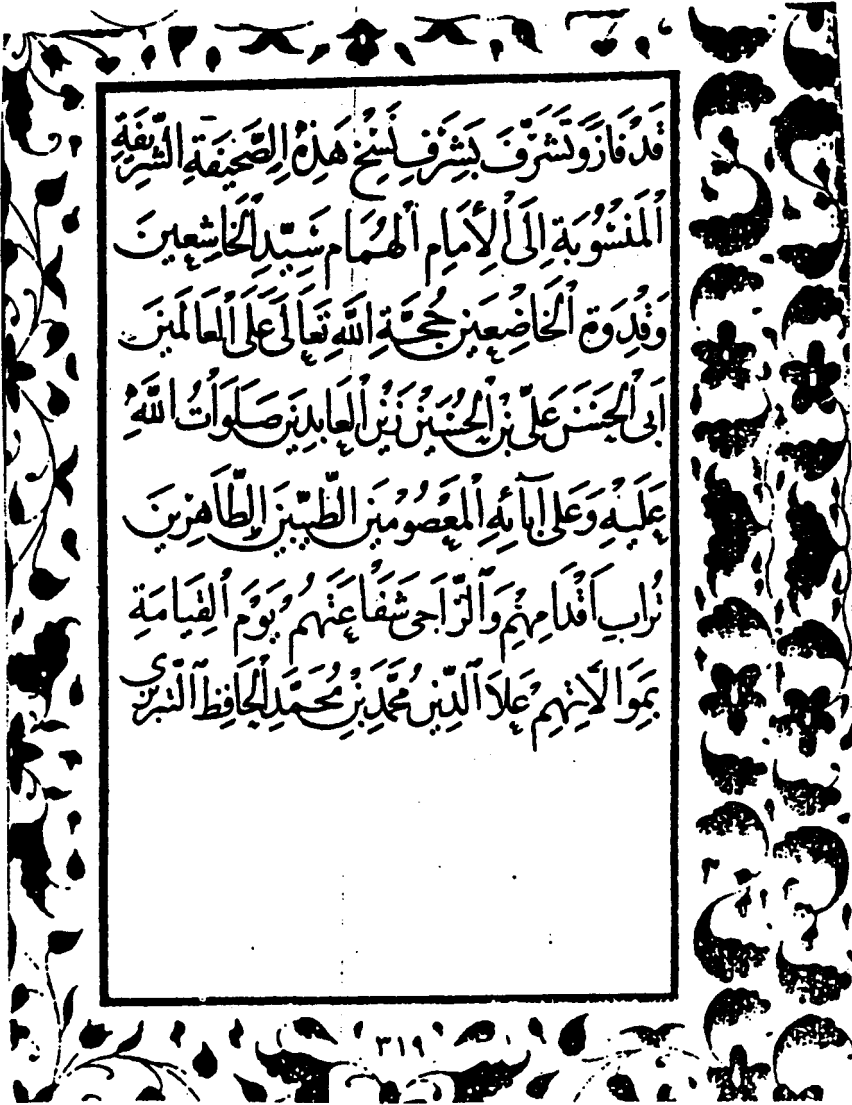 قَدْ فَازَ وَتَشَرَّفَ بِشَرَفِ نَسْخِ هَذِهِ الصَّحِيفَةِ الشَّرِيفَةِ
الْمَنْسُوبَةِ إِلَى الْأِمَامِ الْهُمَامِ سَيِّدِ الْخَاشِعِينَ
وَقُدْوَةِ الْخَاضِعِينَ حُجَّةِ اللَّهِ تَعَالَى عَلَى الْعَالَمِينَ
اَبِى الْحَسَنِ عَلِىِّ بْنِ الْحُسَيْنِ زَيْنِ الْعَابِدِينَ صَلَوَاتُ اللَّهِ
عَلَيْهِ وَعَلى آبَائِهِ الْمَعْصُومِينَ الطَّيِّبِينَ الطَّاهِرِينَ
تُرَابِ اَقْدَامِهِمْ وَالرَّاجِى شَفَاعَتَهُمْ يَوْمَ الْقِيَامَةِ
بِمَوَالَاتِهِمْ عَلَاَ الدِّينِ مُحَمَّدِ بْنِ مُحَمَّدِ الْحَافِظِ التَّبْرِيزِي
٣١٩